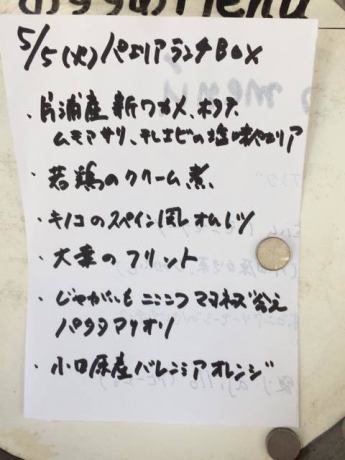 おすすめMenu
5/5(火)パエリアランチBOX
・片浦産新ワカメ、ホタテ、
ムキアサリ、干しエビの塩味パエリア
・若鶏のクリーム煮
・キノコのスペイン風オムレツ
・大葉のフリット
・じゃがいもニンニクマヨネーズ和え
パタタアリオリ
・小田原産バレンシアオレンジ